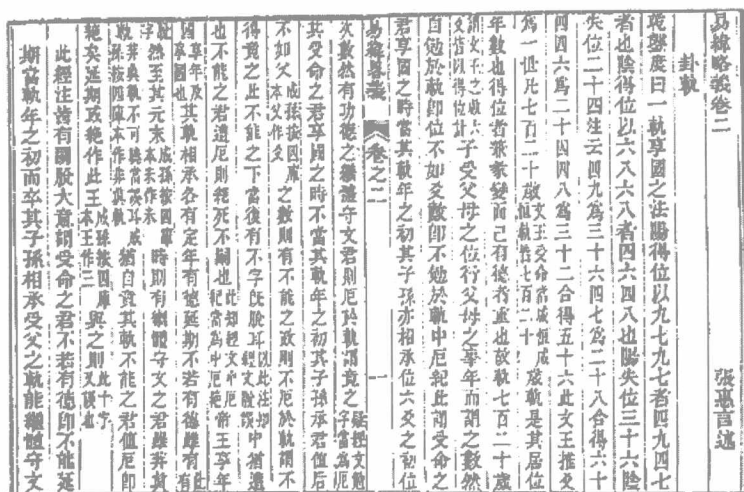 易緯略義卷二　張惠言述
卦軌
乾鑿度曰一軌享國之法陽得位以九七九七者四九四七
者也陰得位以六八六八者四六四八也陽失位三十六陰
失位二十四注云四九爲三十六四七爲二十八合得六十
四四六爲二十四四八爲三十二合得五十六此文王推爻
爲一世凡七百二十歲文王受命當咸恒咸恒軌皆七百二十歲軌是其居位
年數也得位者兼象變而已有德者重也故軌七百二十歲
子受父母之位行父母之事年而謂之數然
自勉於軌即位不如爻數即不勉於軌中厄紀此謂受命之
君享國之時當其軌年之初其子孫亦相承位六爻之初位
易緯略義　卷之二　一
次數然有功德之繼體守文君則厄於軌消竟之
其受命之君享國之時不當其軌年之初其子孫承君值后
不如父成孫按四庫本父作爻之數則有不能之政則不厄於軌謂不
得竟之此不能之下當復有不字旣脫耳中猶遺
也不能之君遺厄則絕死不嗣也帝王享年
因享年及享國也其軌相承各有定年有德延期不若有德雖有
軌然至其元末成孫按四庫本末作未時則有繼體守文之君雖非其
軌猶自責其軌不能之君值厄即
絕矣延期或絕作此王成孫按四庫本王作二與之則此十字又誤也
此經注皆有闕脫大意謂受命之君不若有德即不能延
期當軌年之初而卒其子孫相承受父之軌能繼體守文